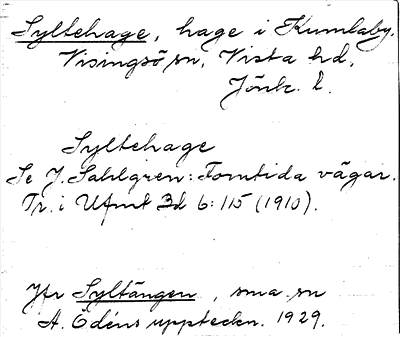 Syltehage, hage i Kumlaby.
Visingsö sn, Vista hd,
Jönk. l.
Syltehage
Se J. Sahlgren: Forntida vägar.
Tr. i Ufmt Bd 6: 115 (1910).
Jfr Syltängen, sma. sn
A. Ödéns uppteckn. 1929.